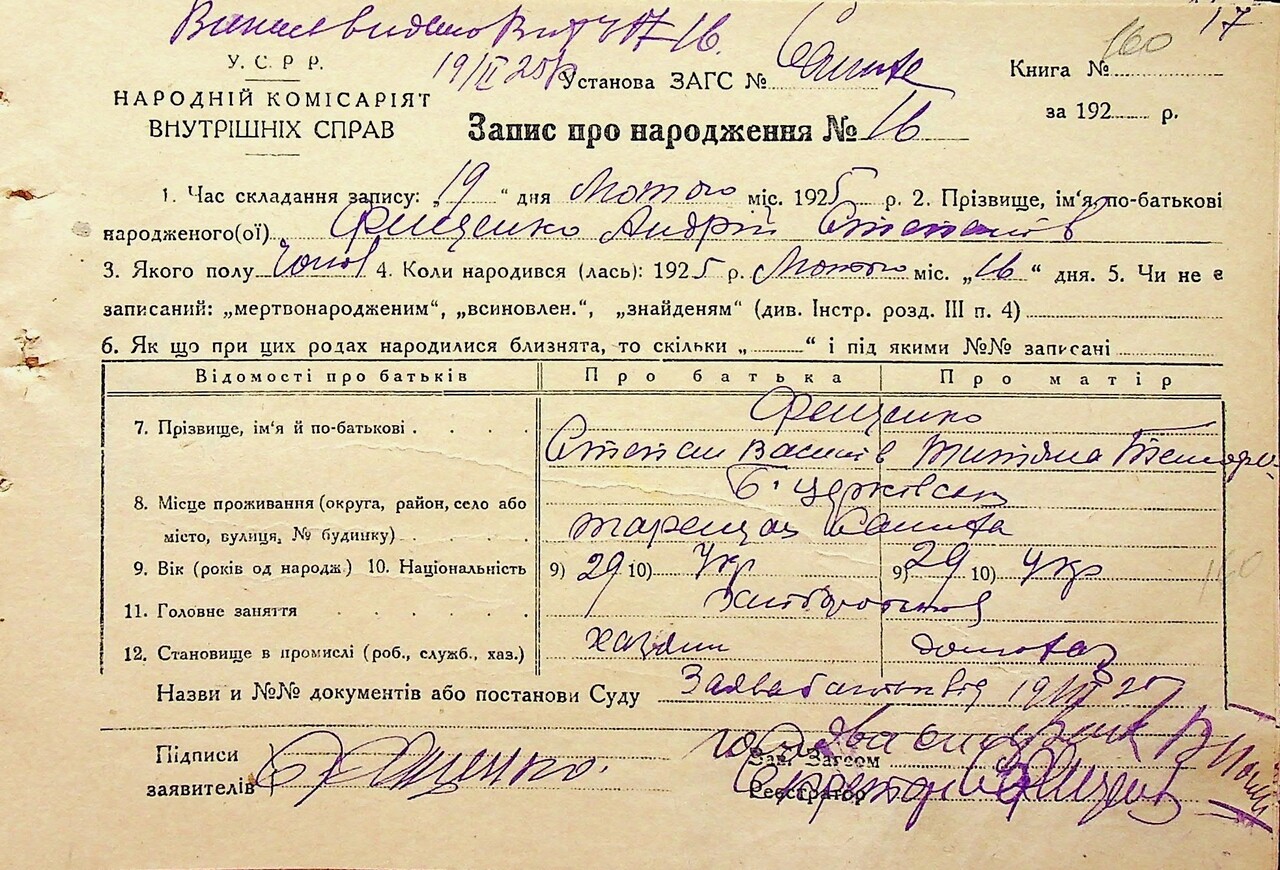 17
160
У. С. Р Р.
19/II 25р Установа ЗАГС №
Книга №
НАРОДНІЙ КОМІСАРІЯТ
ВНУТРІШНІХ СПРАВ
за 192 р.
Запис про народження № 16
1. Час складання запису: „19“ дня Лютого міс. 1925 р. 2. Прізвище, ім'я, по-батькові
народженого(ої) Фещенко Андрій Степанів
3. Якого полу Чолов 4. Коли народився (лась): 1925 р. Лютого міс. „16“ дня. 5. Чи не є
записаний: „мертвонародженим“, „всиновлен.“, „знайденям“ (див. Інстр. розд. III п. 4)
6. Як що при цих родах народилися близнята, то скільки „ “ і під якими №№ записані
Відомості про батьків Про батька Про матір
Фещенко
7. Прізвище, ім'я й по-батькові
Степан Василів Титяна
Б. Церківська
8. Місце проживання (округа, район, село або
місто, вулиця, № будинку)
9. Вік (років од народж.) 10. Національність 9) 29 10) Укр 9) 29 10) Укр
11. Головне заняття Хліборобство
12. Становище в промислі (роб., служб., хаз.) хазяїн
Назви и №№ документів або постанови Суду Заява батьків від 19/II 25
Підписи
заявителів Фещенко.
Зав. Загсом
Реєстратор Секретар
160